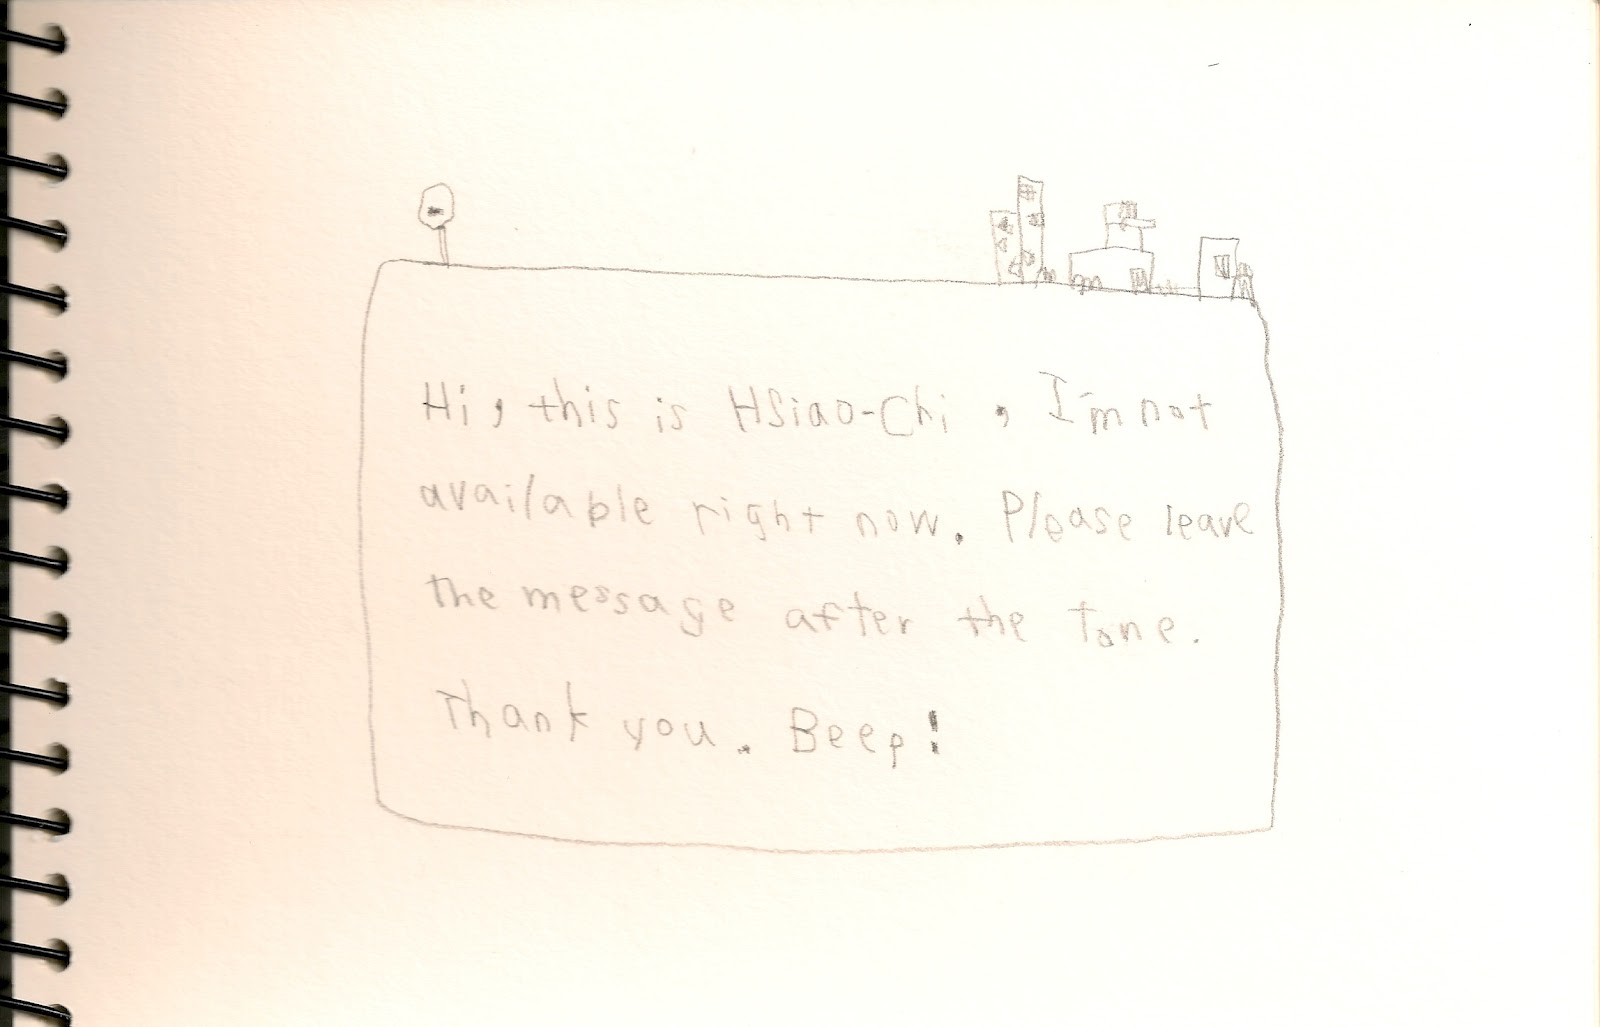 Hi, this is Hsiao-Chi, I'm not
available right now. Please leave
the message after the tone.
Thank you. Beep!